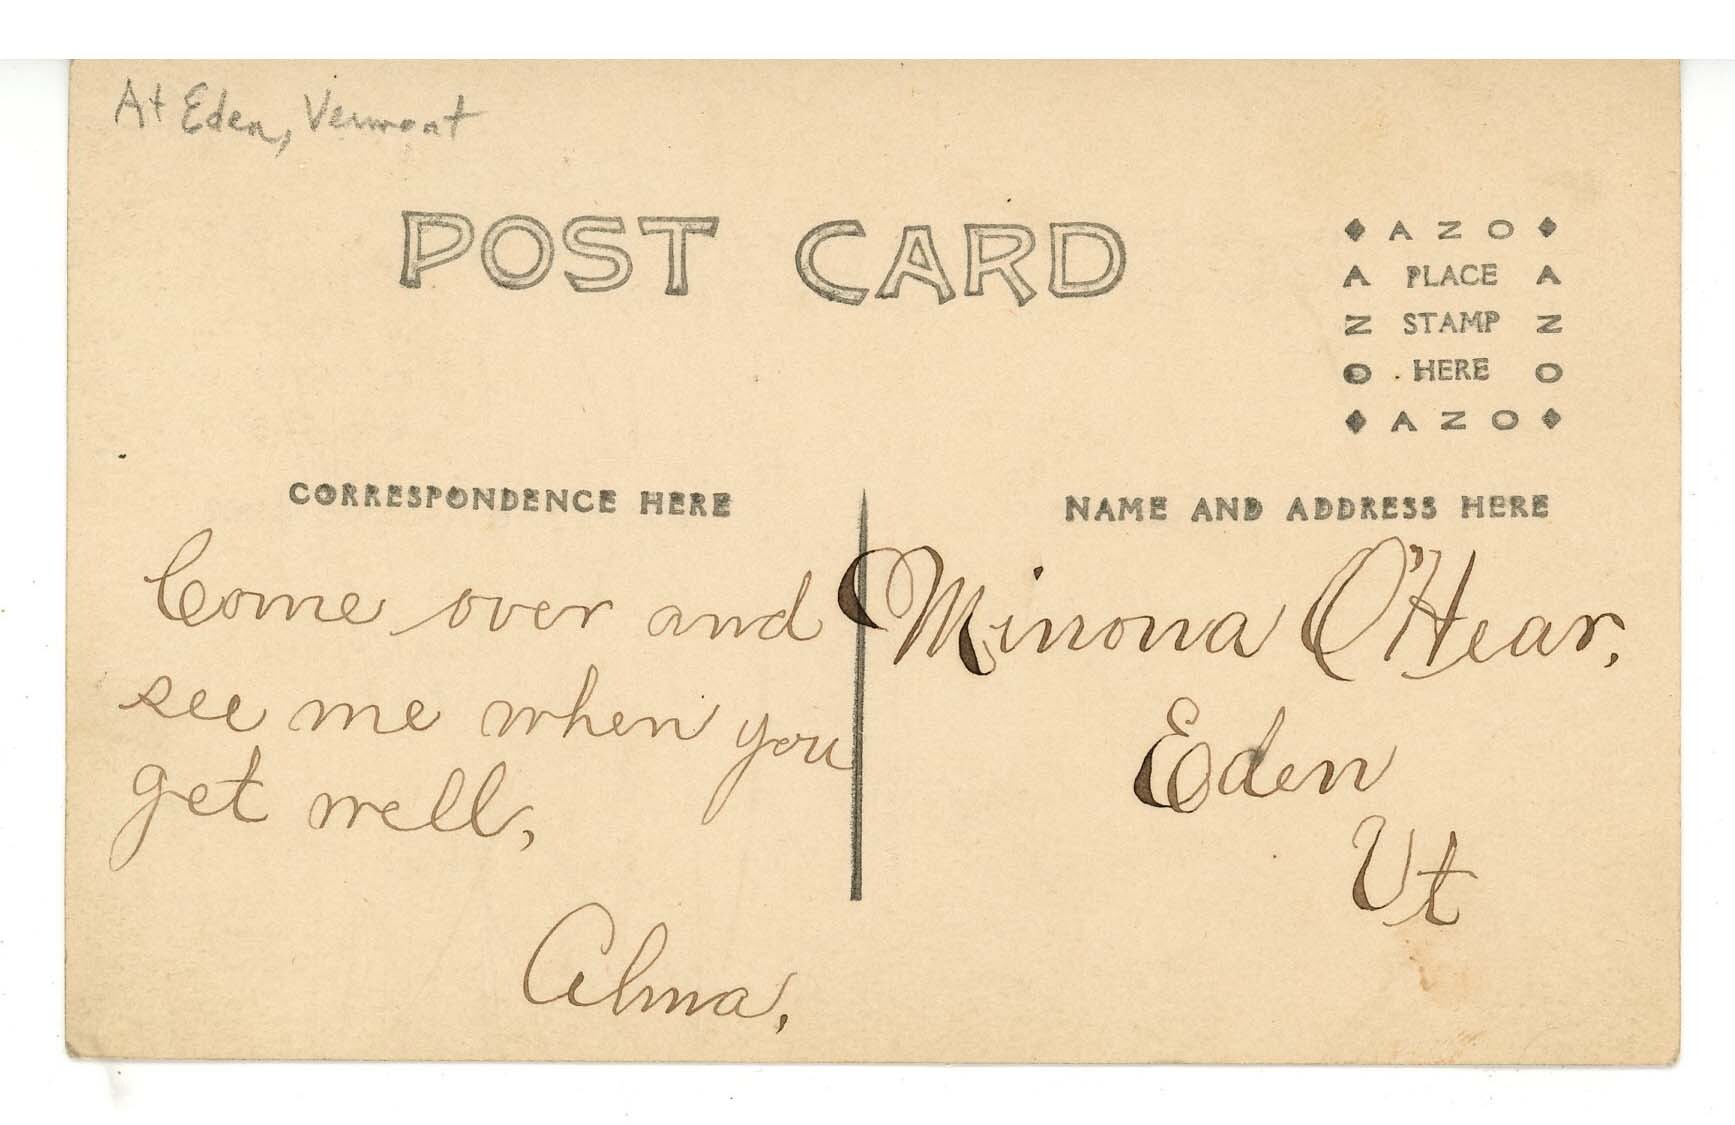 At Eden, Vermont
POST CARD
AZO
A PLACE A
Z STAMP Z
O HERE O
AZO
CORRESPONDENCE HERE
Come over and
see me when you
get well,
Alma,
NAME AND ADDRESS HERE
Minona O'Hear,
Eden
Vt